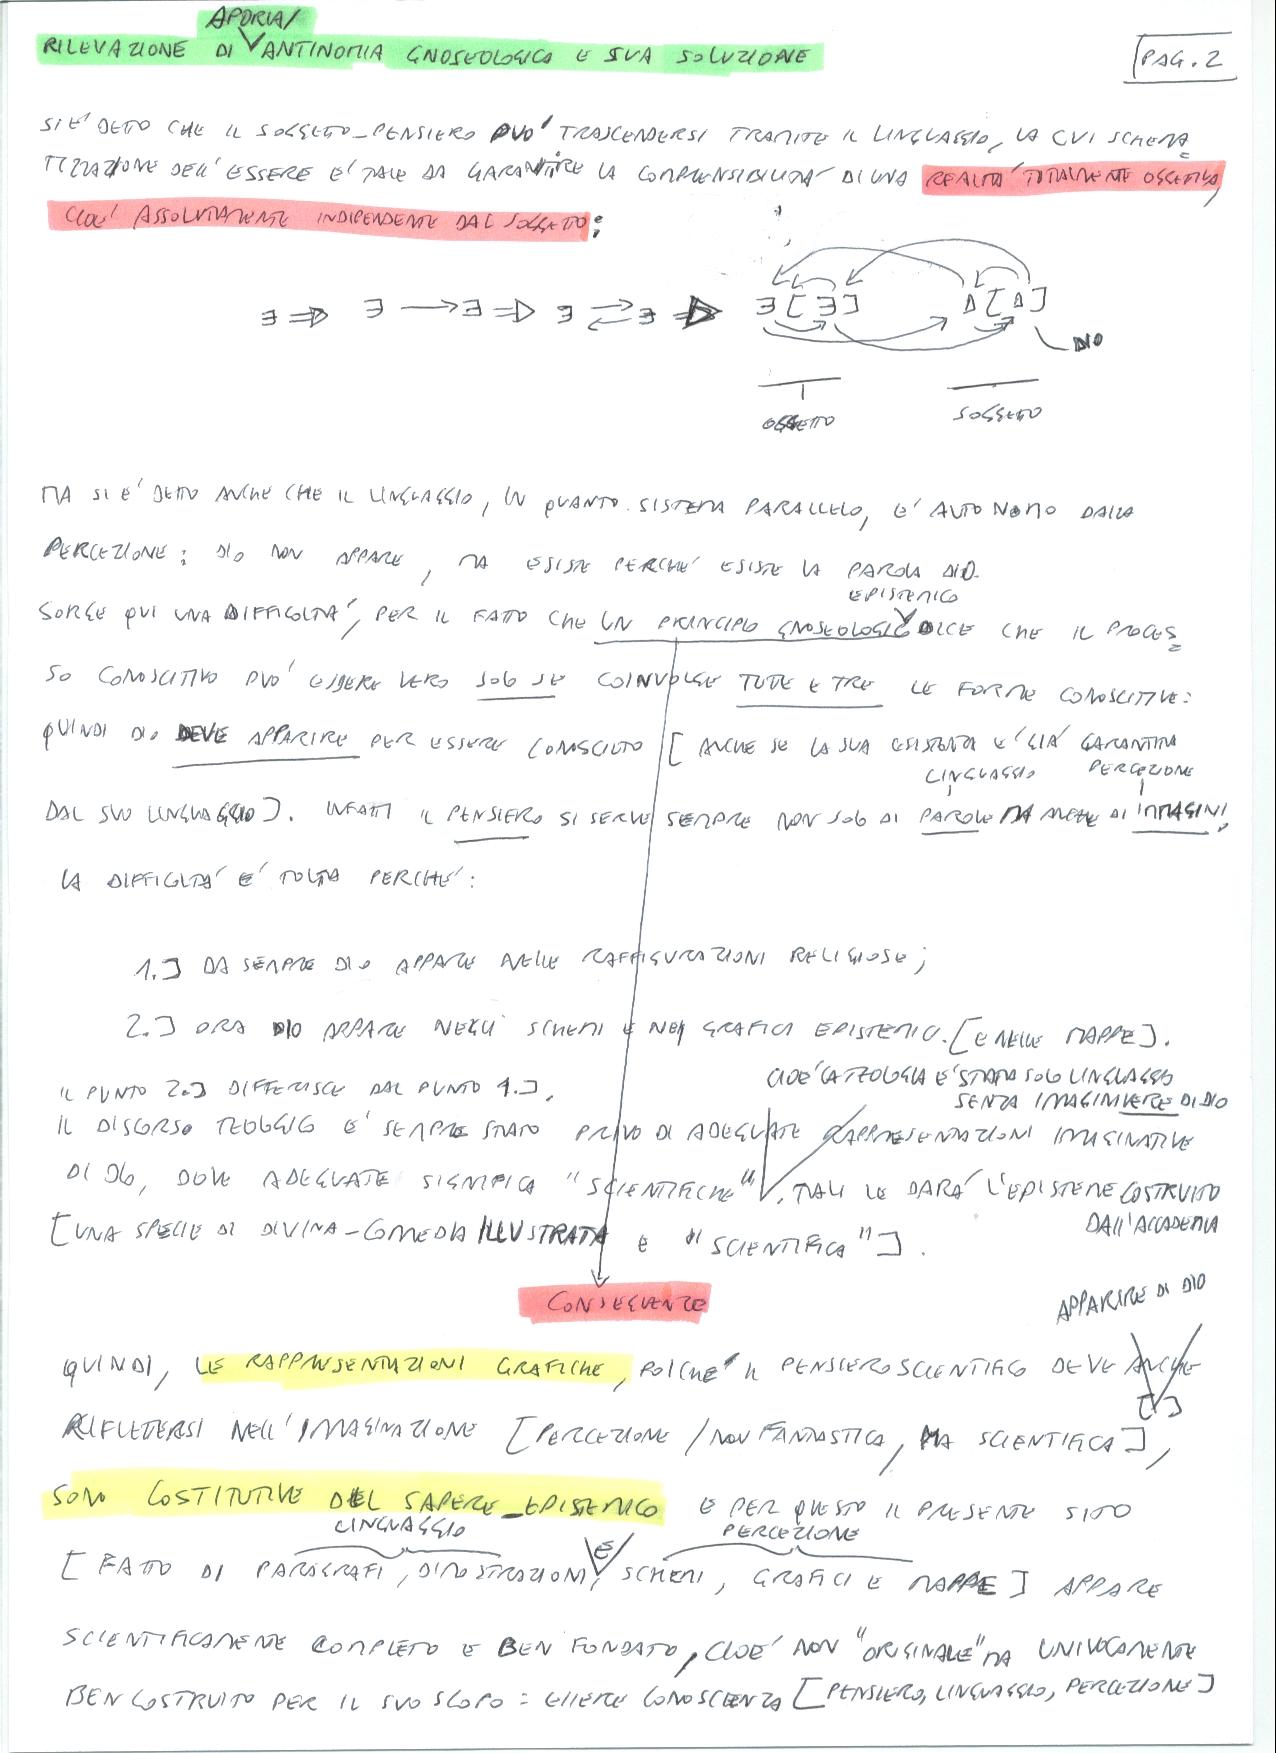 APORIA/
RILEVAZIONE DI ANTINOMIA GNOSEOLOGICA E SUA SOLUZIONE
PAG. 2
SI E' DETTO CHE IL SOGGETTO-PENSIERO PUO' TRASCENDERSI TRAMITE IL LINGUAGGIO, LA CUI SCHEMA=
TIZZAZIONE DELL'ESSERE E' TALE DA GARANTIRE LA COMPRENSIBILITA' DI UNA REALTA' TOTALMENTE OGGETTIVA,
CIOE' ASSOLUTAMENTE INDIPENDENTE DAL SOGGETTO:
∃ ⇒ ∃ → ∃ ⇒ ∃ ⇄ ∃ ⇒ ∃ [∃] Δ [Δ]
DIO
OGGETTO SOGGETTO
MA SI E' DETTO ANCHE CHE IL LINGUAGGIO, IN QUANTO SISTEMA PARALLELO, E' AUTONOMO DALLA
PERCEZIONE: DIO NON APPARE, MA ESISTE PERCHE' ESISTE LA PAROLA DIO.
EPISTEMICO
SORGE QUI UNA DIFFICOLTA', PER IL FATTO CHE UN PRINCIPIO GNOSEOLOGICO DICE CHE IL PROCES=
SO CONOSCITIVO PUO' ESSERE VERO SOLO SE COINVOLGE TUTTE E TRE LE FORME CONOSCITIVE:
QUINDI DIO DEVE APPARIRE PER ESSERE CONOSCIUTO [ANCHE SE LA SUA ESISTENZA E' GIA' GARANTITA
LINGUAGGIO PERCEZIONE
DAL SUO LINGUAGGIO]. INFATTI IL PENSIERO SI SERVE SEMPRE NON SOLO DI PAROLE MA ANCHE DI IMMAGINI.
LA DIFFICOLTA' E' TOLTA PERCHE':
1.] DA SEMPRE DIO APPARE NELLE RAFFIGURAZIONI RELIGIOSE;
2.] ORA DIO APPARE NEGLI SCHEMI E NEI GRAFICI EPISTEMICI. [E NELLE MAPPE].
IL PUNTO 2.] DIFFERISCE DAL PUNTO 1.].
CIOE' LA TEOLOGIA E' STATA SOLO LINGUAGGIO
SENZA IMMAGINI VERE DI DIO
IL DISCORSO TEOLOGICO E' SEMPRE STATO PRIVO DI ADEGUATE RAPPRESENTAZIONI IMMAGINATIVE
DI DIO, DOVE ADEGUATE SIGNIFICA "SCIENTIFICHE". TALI LE DARA' L'EPISTEME COSTRUITO
DALL'ACCADEMIA
[UNA SPECIE DI DIVINA-COMMEDIA ILLUSTRATA E "SCIENTIFICA"].
CONSEGUENZE
APPARIRE DI DIO
QUINDI, LE RAPPRESENTAZIONI GRAFICHE, POICHE' IL PENSIERO SCIENTIFICO DEVE ANCHE
[]
RIFLETTERSI NELL'IMMAGINAZIONE [PERCEZIONE / NON FANTASTICA, MA SCIENTIFICA],
SONO COSTITUTIVE DEL SAPERE-EPISTEMICO E PER QUESTO IL PRESENTE SITO
LINGUAGGIO PERCEZIONE
[FATTO DI PARAGRAFI, DIMOSTRAZIONI, E SCHEMI, GRAFICI E MAPPE] APPARE
SCIENTIFICAMENTE COMPLETO E BEN FONDATO, CIOE' NON "ORIGINALE" MA UNIVOCAMENTE
BEN COSTRUITO PER IL SUO SCOPO: ESSERE CONOSCENZA [PENSIERO, LINGUAGGIO, PERCEZIONE]